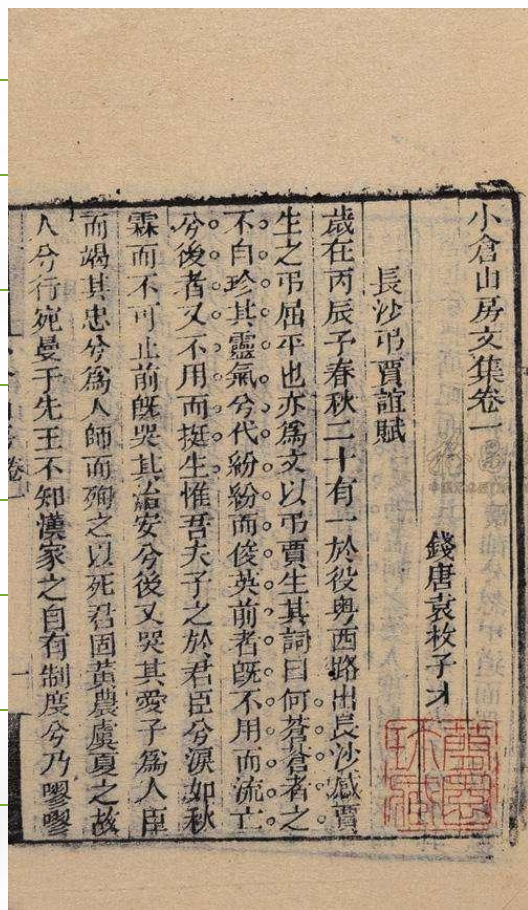 小倉山房文集卷一
錢唐袁枚子才
長沙弔賈誼賦
歲在丙辰予春秋二十有一於役粤西路出長沙感賈
生之弔屈平也亦爲文以弔賈生其詞曰何蒼蒼者之
不自珍其靈氣兮代紛紛而俊英前者旣不用而流亡
兮後者又不用而挺生惟吾夫子之於君臣兮淚如秋
霖而不可止前旣哭其治安兮後又哭其愛子爲人臣
而竭其忠兮爲人師而殉之以死君固黃農虞夏之故
人兮行宛曼于先王不知漢家之自有制度兮乃嘐嘐